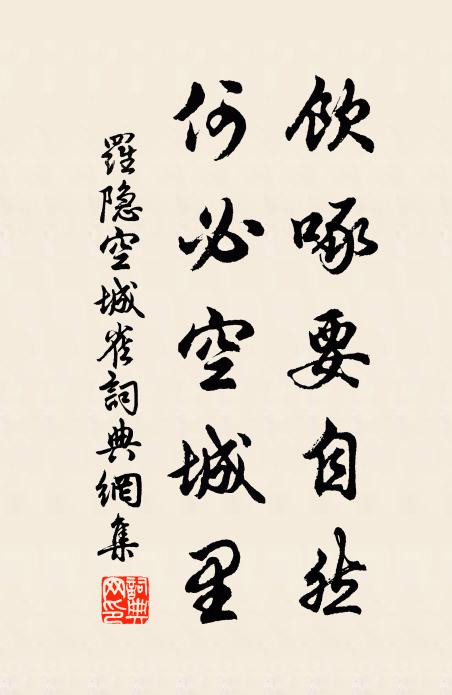 飲啄要自然
何必空城里
羅隐空城雀詞典網集
詞典网印